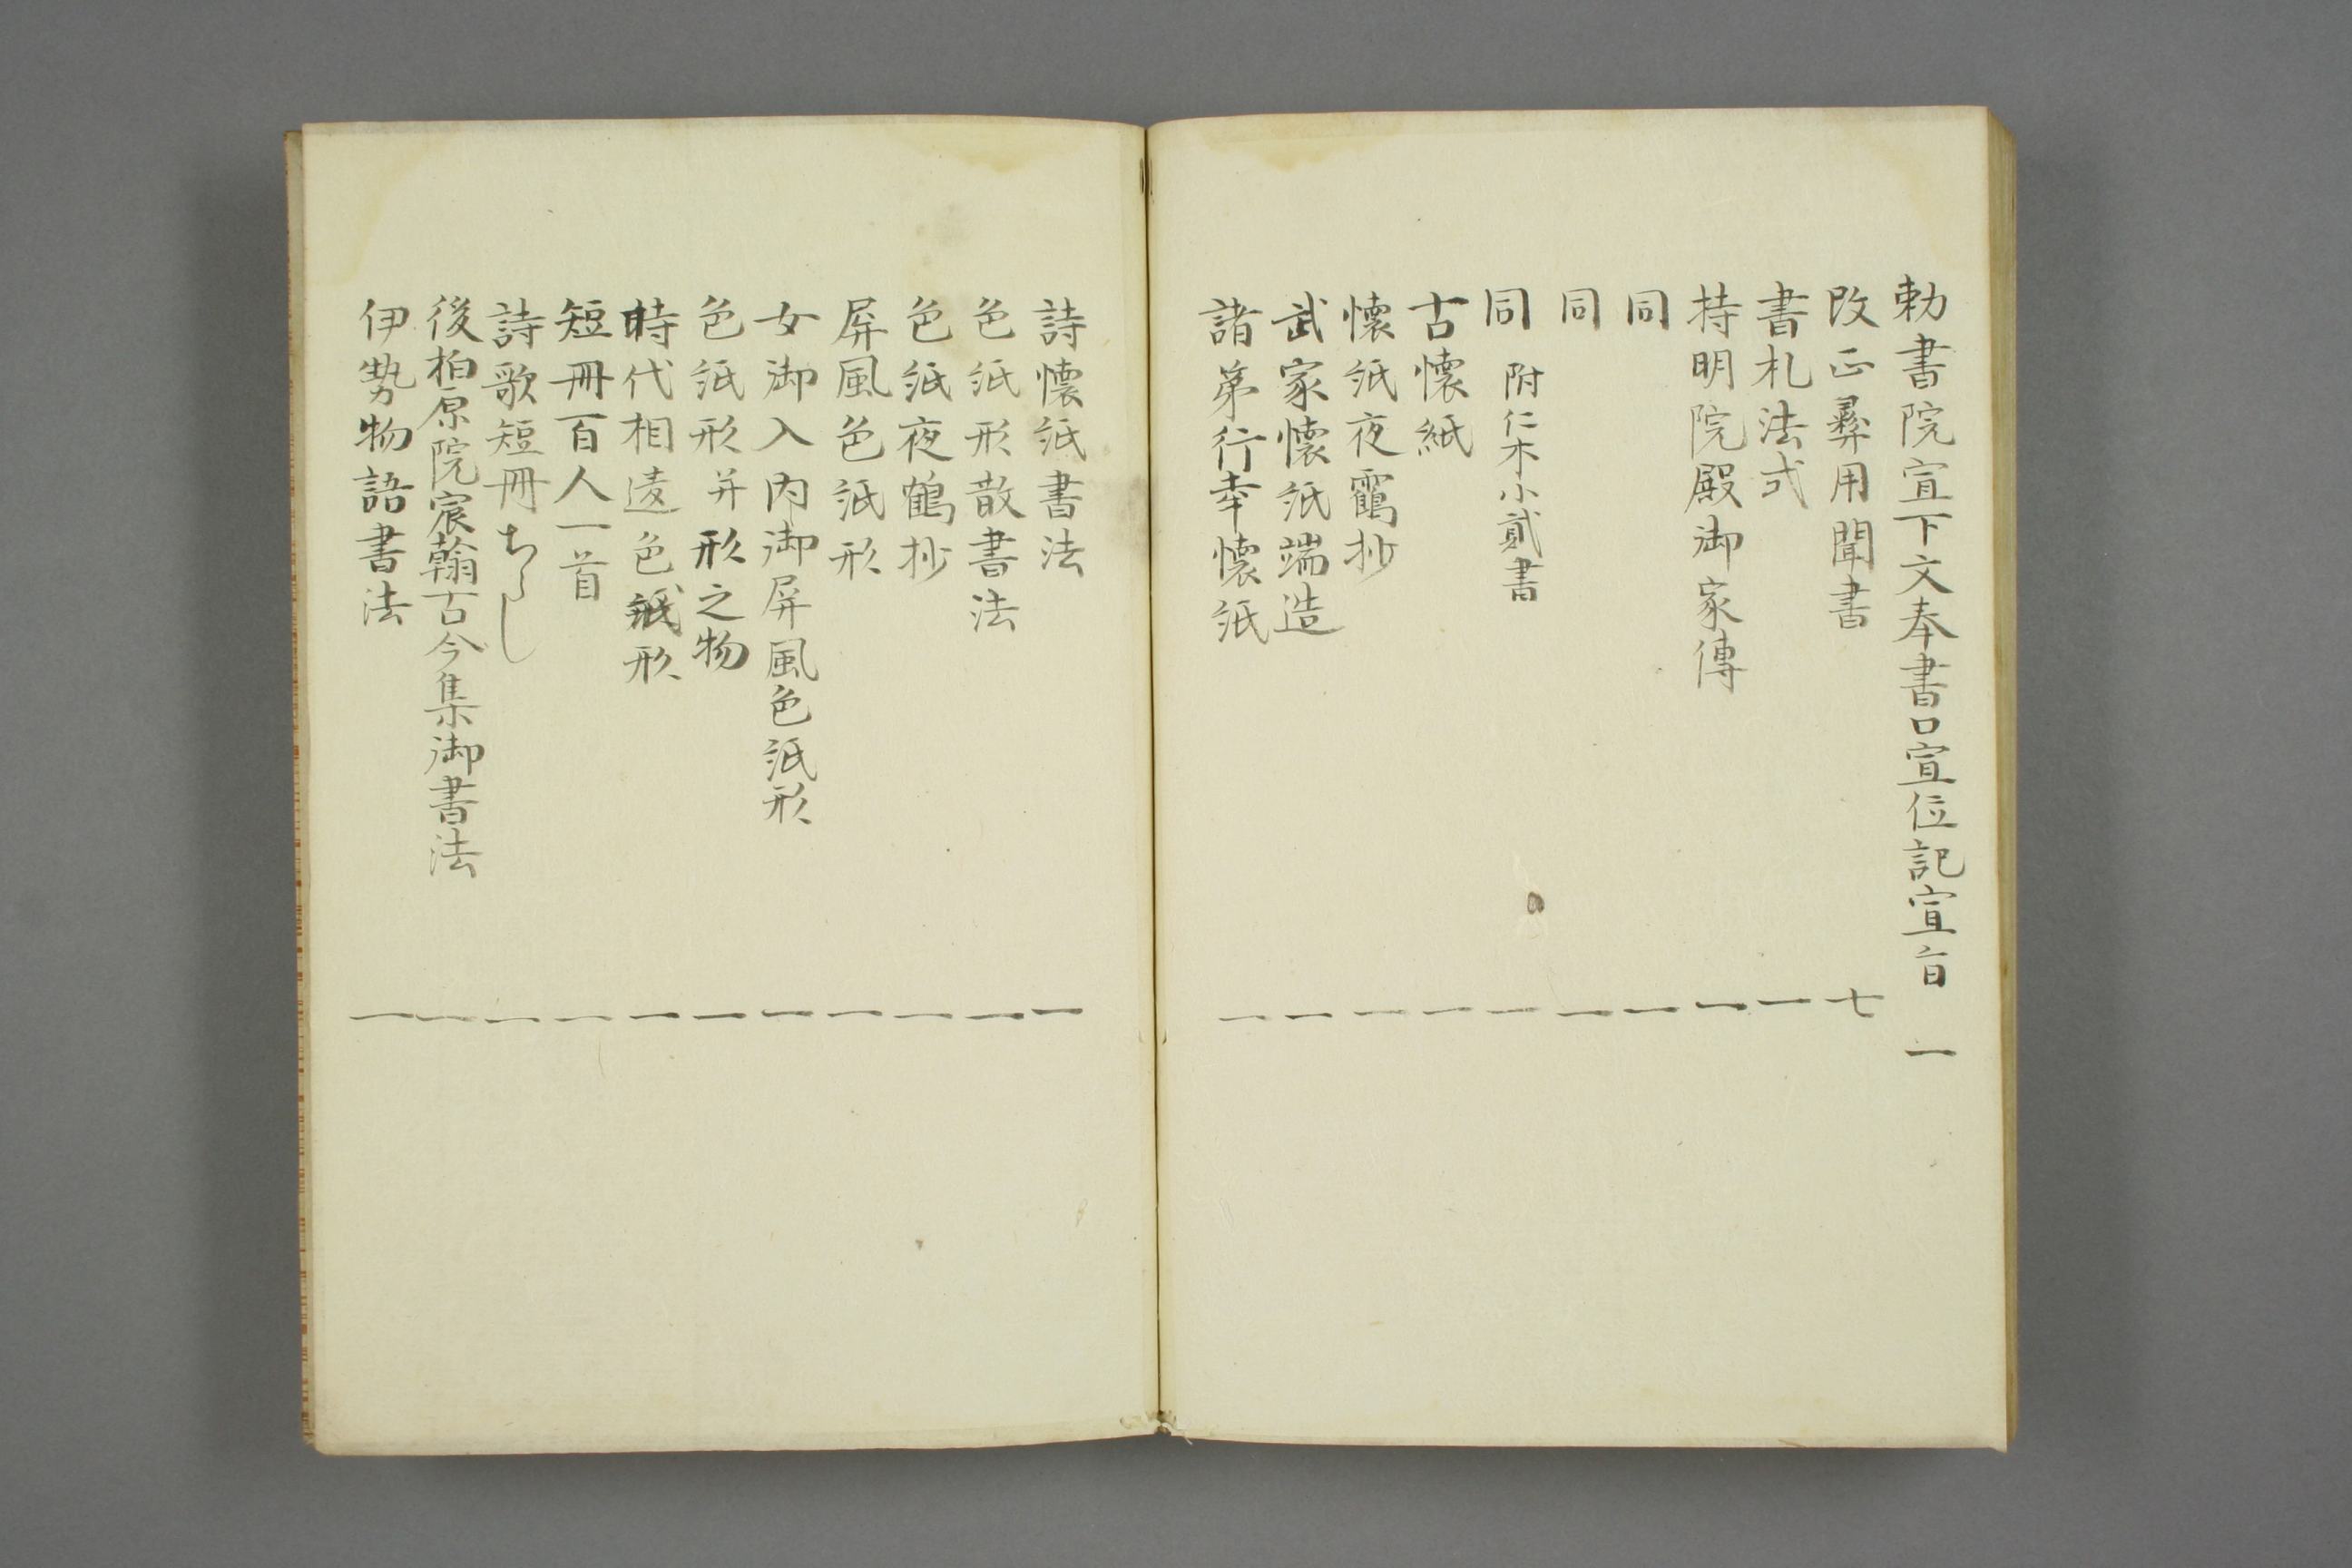 勅書院宣下文奉書口宣位記宣旨 一
改正彝用聞書 七
書札法式 一
持明院殿御家傳 一
同 一
同 一
同 附仁木小貳書 一
古懐紙 一
懐紙夜靏抄 一
武家懐紙端造 一
諸第行幸懐紙 一
詩懐紙書法 一
色紙形散書法 一
色紙夜鶴抄 一
屏風色紙形 一
女御入内御屏風色紙形 一
色紙形并形之物 一
時代相違色紙形 一
短冊百人一首 一
詩歌短冊ちらし 一
後柏原院宸翰古今集御書法 一
伊勢物語書法 一